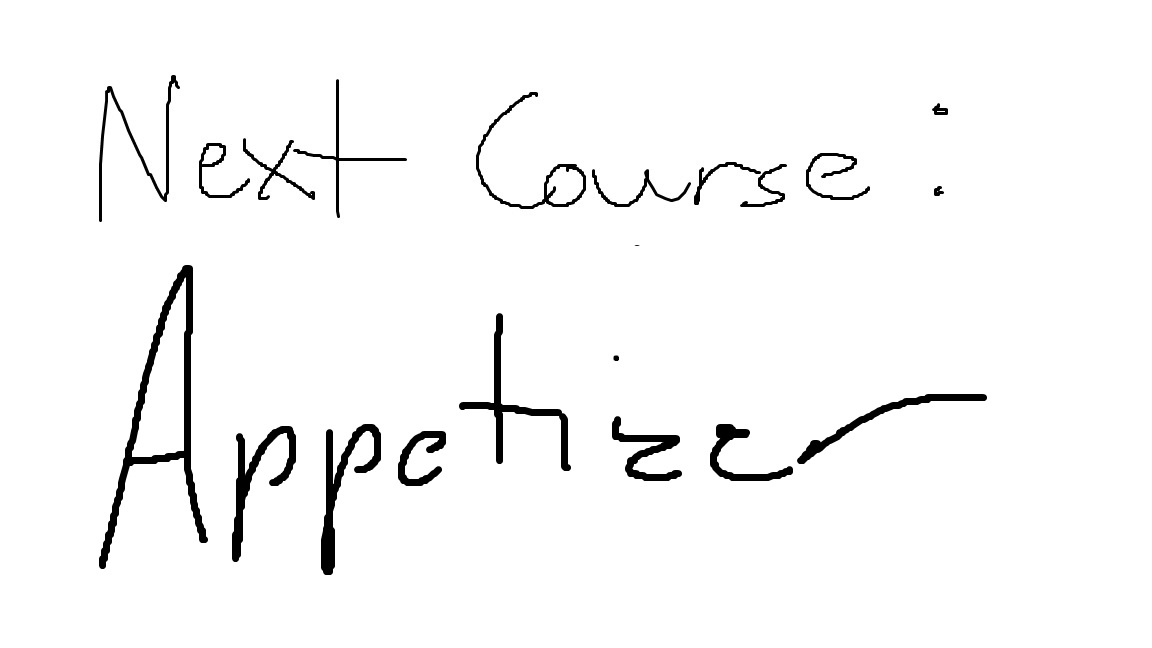 Next Course:
Appetizer